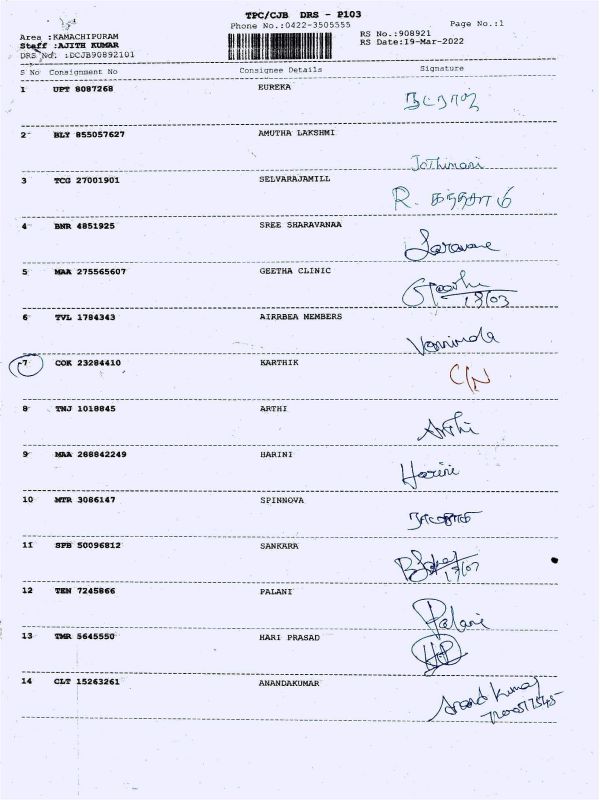 TPC/CJB DRS - P103
Phone No.:0422-3505555
Page No.:1
Area :KAMACHIPURAM
Staff :AJITH KUMAR
DRS No. :DCJB90892101
RS No.:908921
RS Date:19-Mar-2022
S No Consignment No Consignee Details Signature
1 UPT 8087268 EUREKA
2 BLY 855057627 AMUTHA LAKSHMI Jothimani
3 TCG 27001901 SELVARAJAMILL R.
4 BNR 4851925 SREE SHARAVANAA Saravane
5 MAA 275565607 GEETHA CLINIC
6 TVL 1784343 AIRRBEA MEMBERS
7 COK 23284410 KARTHIK C/N
8 TNJ 1018845 ARTHI Arthi
9 MAA 288842249 HARINI Harini
10 MTR 3086147 SPINNOVA
11 SPB 50096812 SANKARA
12 TEN 7245866 PALANI Palani
13 TMR 5645550 HARI PRASAD
14 CLT 15263261 ANANDAKUMAR Anand Kumar